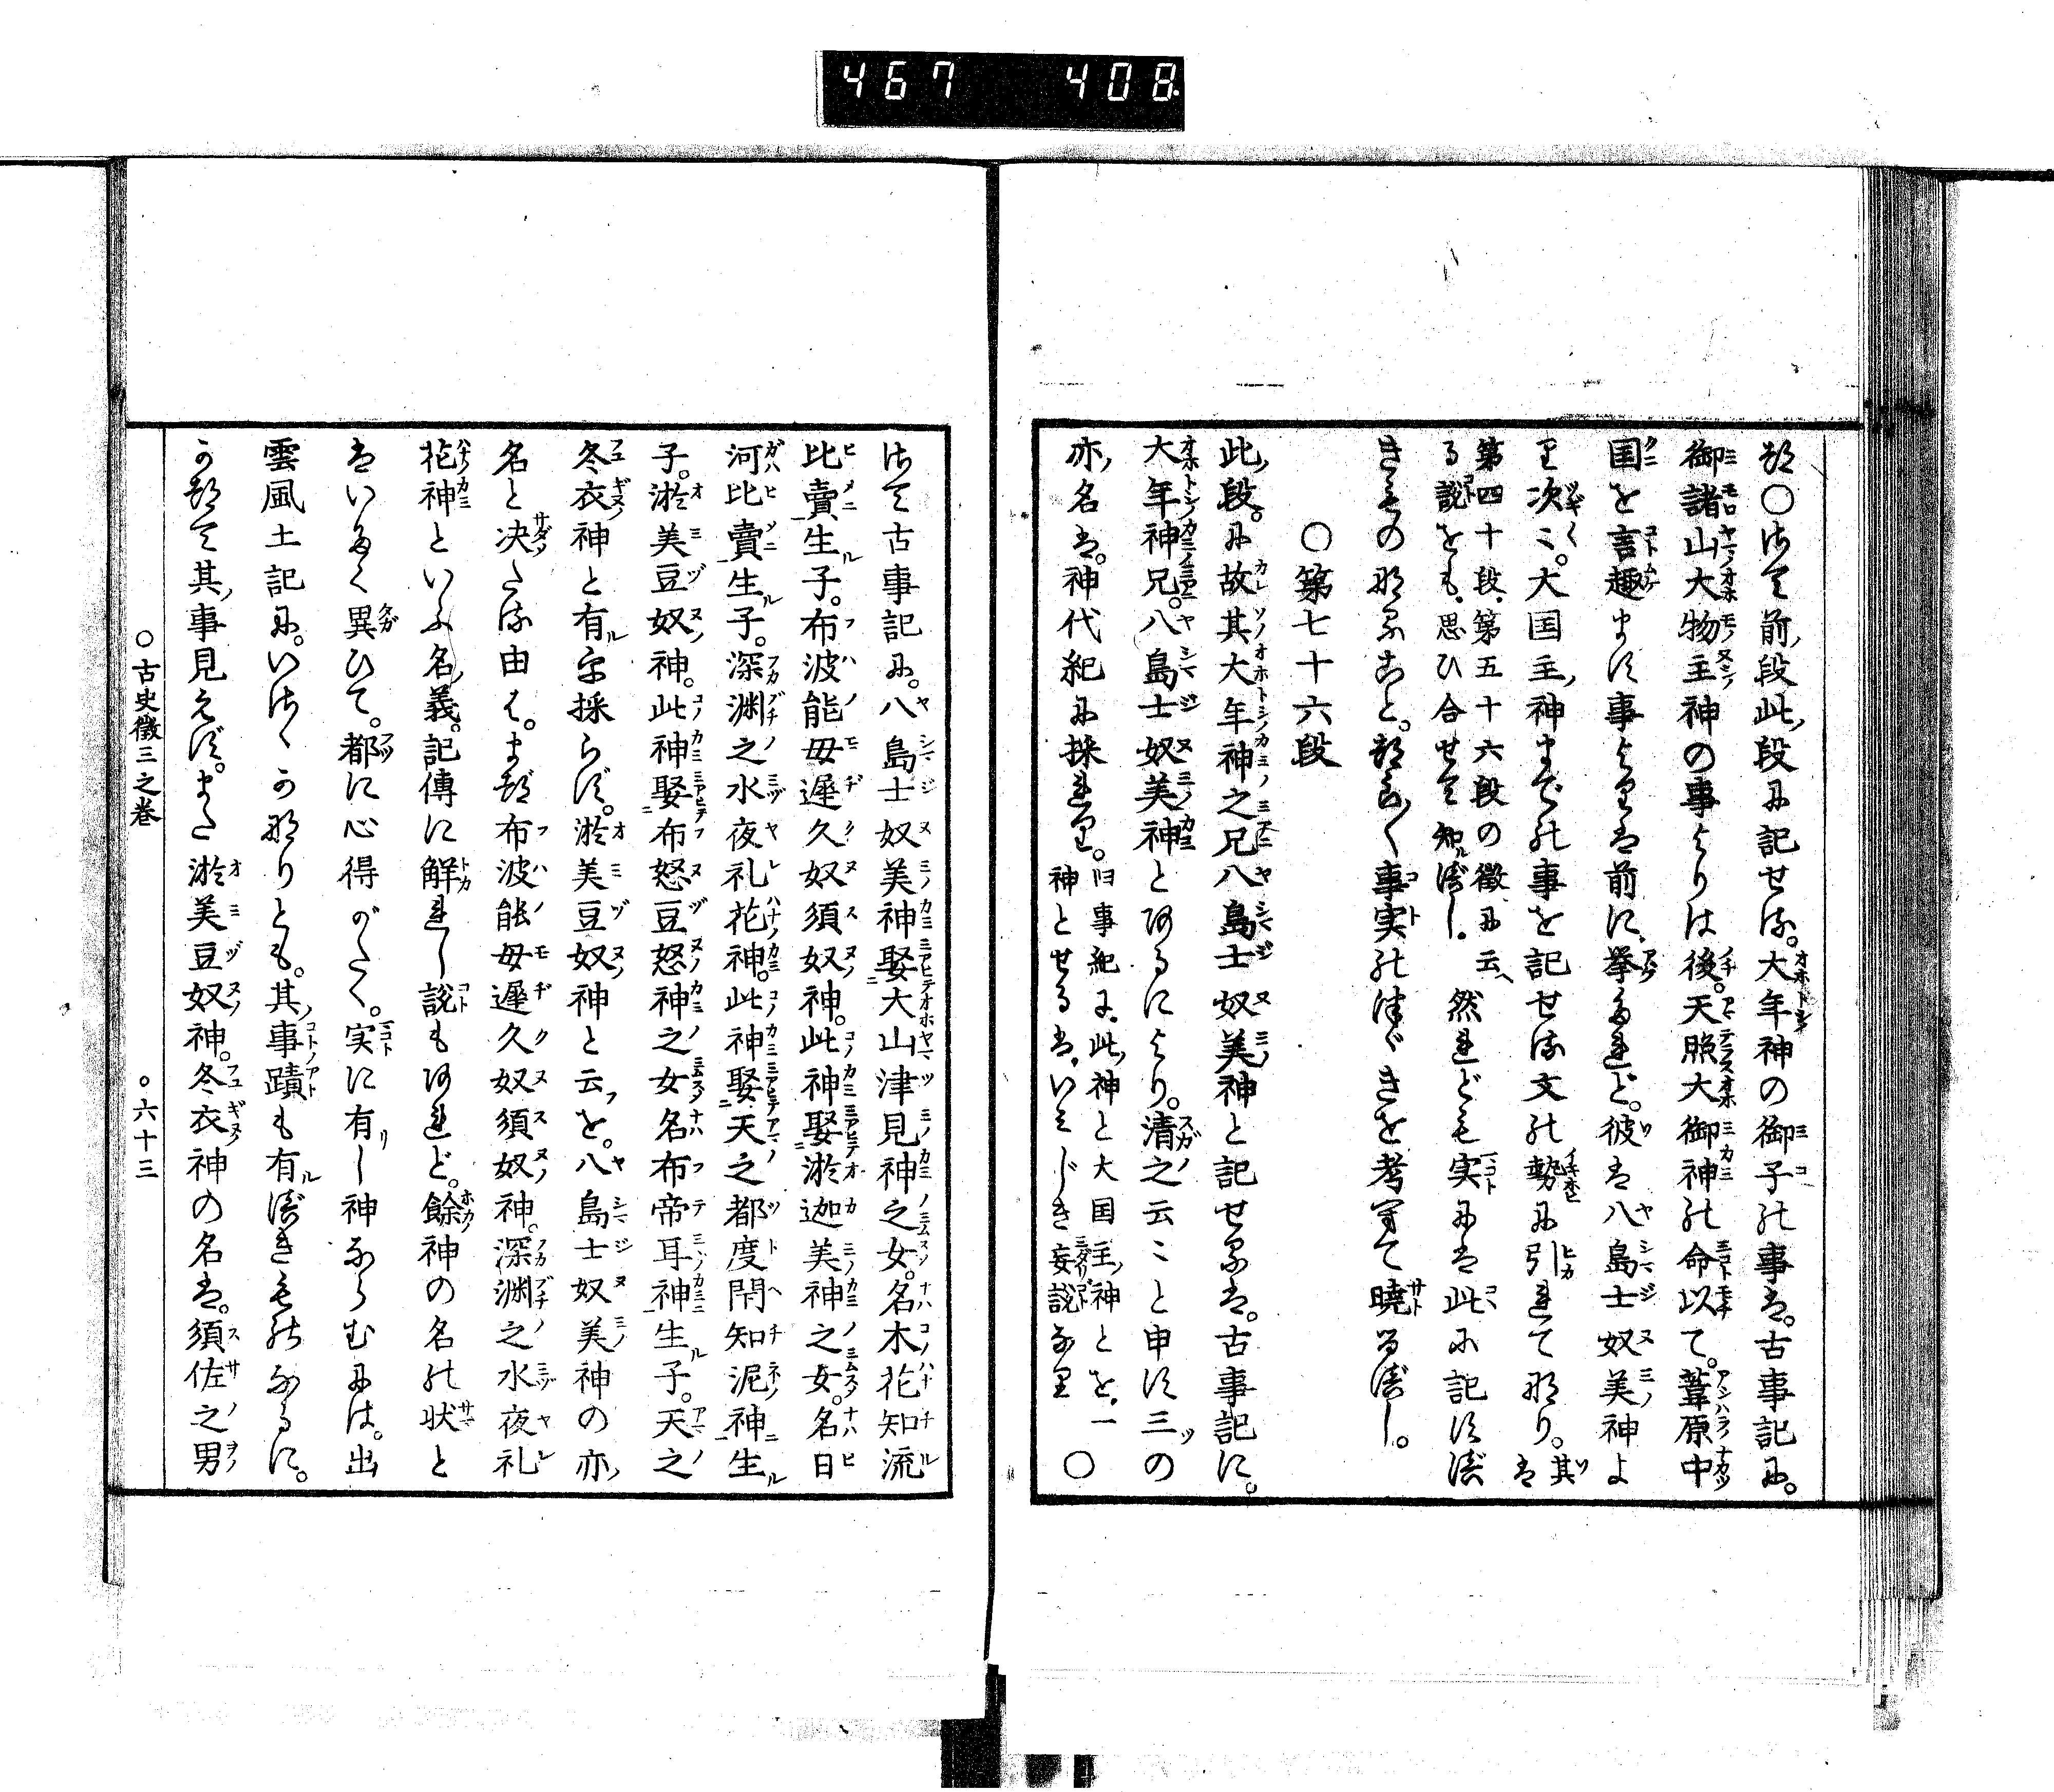 467 408
都〇さて前段此段に記せる。大年神の御子の事は。古事記に。
御諸山大物主神の事よりは後。天照大御神の命以て。葦原中
国を言趣ます事よりは前に挙たれど。彼は八島士奴美神よ
り次々。大国主神までの事を記せる文の勢に引れて那り。其は
第四十段、第五十六段の徴に云る説をも、思ひ合せて知べし。然れども実には此に記すべ
きもの那ること。都々く事実のはぶきを考寛て暁るべし。
〇第七十六段
此段。に故其大年神之兄八島士奴美神と記せるは。古事記に。
大年神兄。八島士奴美神とあるにより。清之云々と申す三の
亦名は。神代紀に採れり。旧事紀に、此神と大国主神とを、一神とせるは、いみじき妄説なり〇
さて古事記に。八島士奴美神娶大山津見神之女。名木花知流
比賣生子。布波能母遅久奴須奴神。此神娶淤迦美神之女。名日
河比賣生子。深淵之水夜礼花神。此神娶天之都度閇知泥神生
子。淤美豆奴神。此神娶布怒豆怒神之女名布帝耳神生子。天之
冬衣神と有を採らず。淤美豆奴神と云を。八島士奴美神の亦
名と決たる由は。まづ布波能母遅久奴須奴神。深淵之水夜礼
花神といふ名義。記傳に解れし説もあれど。餘神の名の状と
はいたく異ひて。都に心得がたく。実に有し神ならむには。出
雲風土記に。いさゝか那りとも。其事蹟も有べきものなるに。
かつて其事見えず。また淤美豆奴神。冬衣神の名は。須佐之男
〇古史徴三之巻 〇六十三